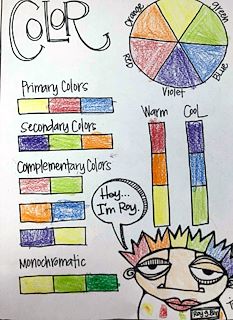 Color
Orange
green
Red
Blue
Violet
Primary Colors
Secondary Colors
Complementary Colors
Monochromatic
Warm
Cool
Hey...
I'm Roy.
Roy G. Biv